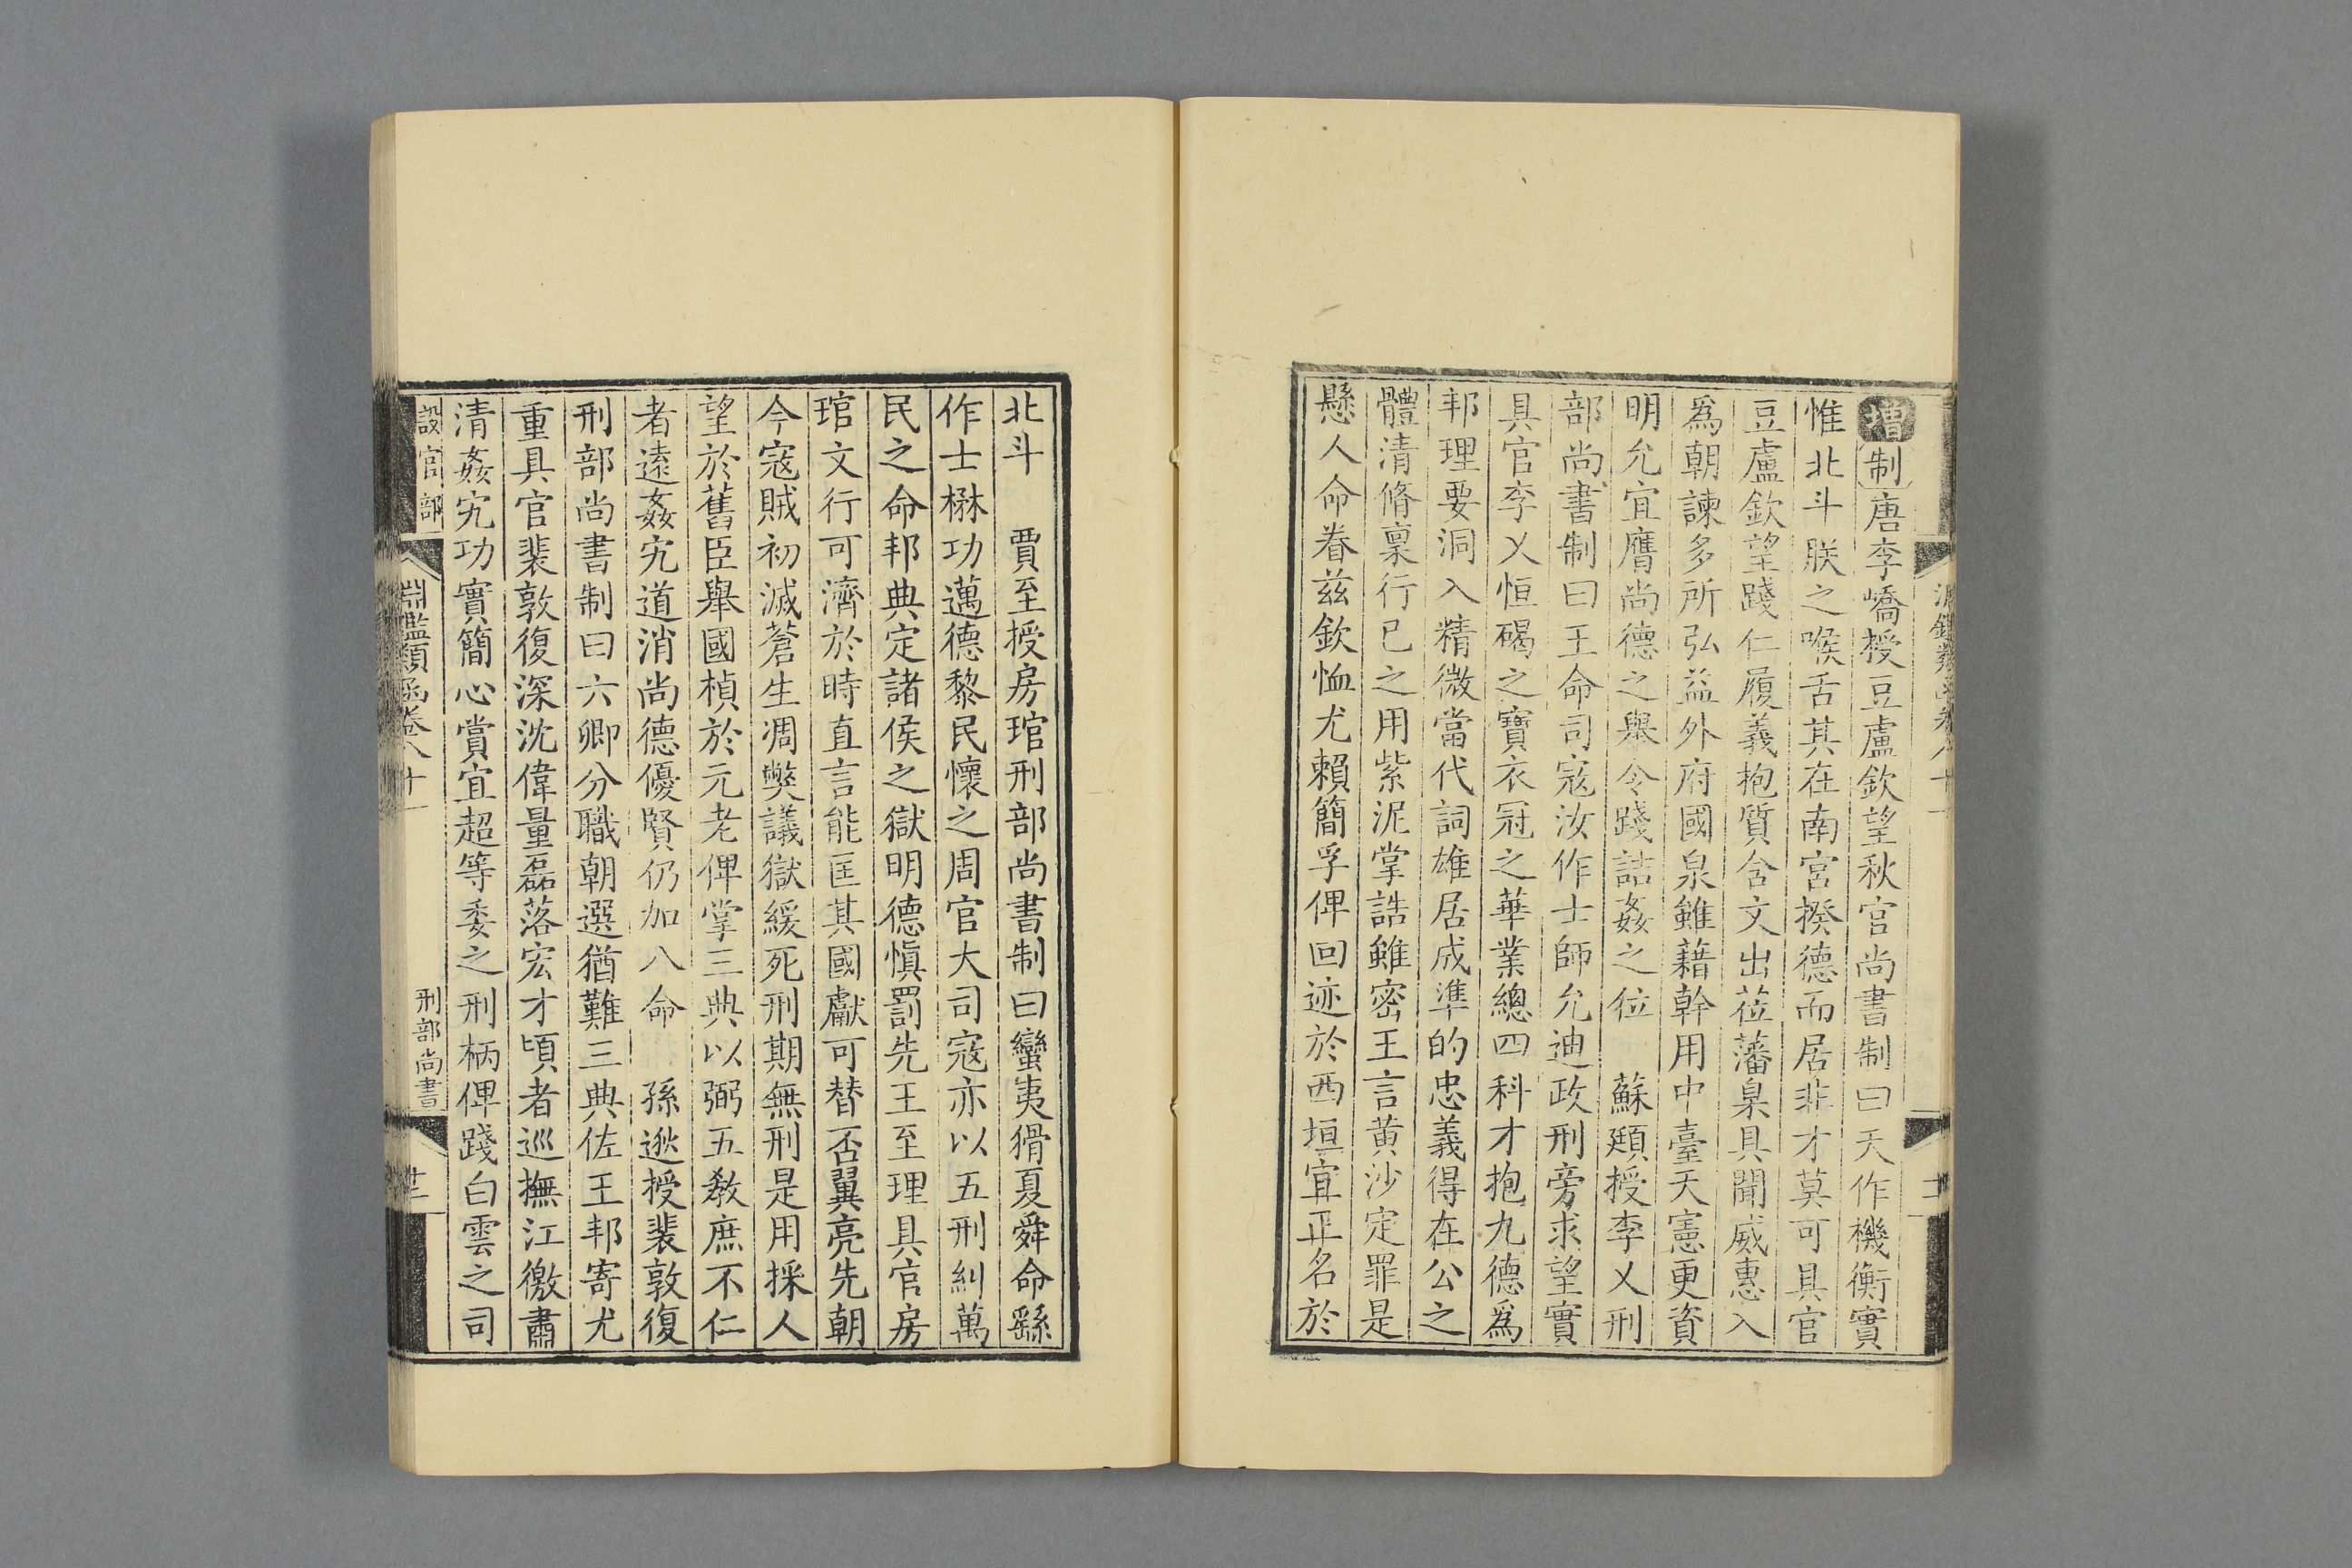 增制唐李嶠授豆盧欽望秋宮尚書制曰天作機衡實
惟北斗朕之喉舌其在南宮揆德而居非才莫可具官
豆盧欽望踐仁履義抱質含文出莅藩臬具聞威惠入
爲朝諫多所弘益外府國泉雖藉幹用中臺天憲更資
明允宜膺尚德之舉令踐詰姦之位　蘇頲授李乂刑
部尚書制曰王命司寇汝作士師允迪政刑旁求望實
具官李乂恒碣之寶衣冠之華業總四科才抱九德爲
邦理要洞入精微當代詞雄居成準的忠義得在公之
體清脩稟行已之用紫泥掌誥雖密王言黄沙定罪是
懸人命眷兹欽恤尤賴簡孚俾回迹於西垣宜正名於
北斗　賈至授房琯刑部尚書制曰蠻夷猾夏舜命繇
作士楙功邁德黎民懷之周官大司寇亦以五刑糾萬
民之命邦典定諸侯之獄明德愼罰先王至理具官房
琯文行可濟於時直言能匡其國獻可替否翼亮先朝
今寇賊初滅蒼生凋獘議獄緩死刑期無刑是用採人
望於舊臣舉國楨於元老俾掌三典以弼五敎庶不仁
者遠姦宄道消尚德優賢仍加八命　孫逖授裴敦復
刑部尚書制曰六卿分職朝選猶難三典佐王邦寄尤
重具官裴敦復深沈偉量磊落宏才頃者巡撫江徼肅
清姦宄功實簡心賞宜超等委之刑柄俾踐白雲之司
設官部
淵鑑類函卷八十一
刑部尚書